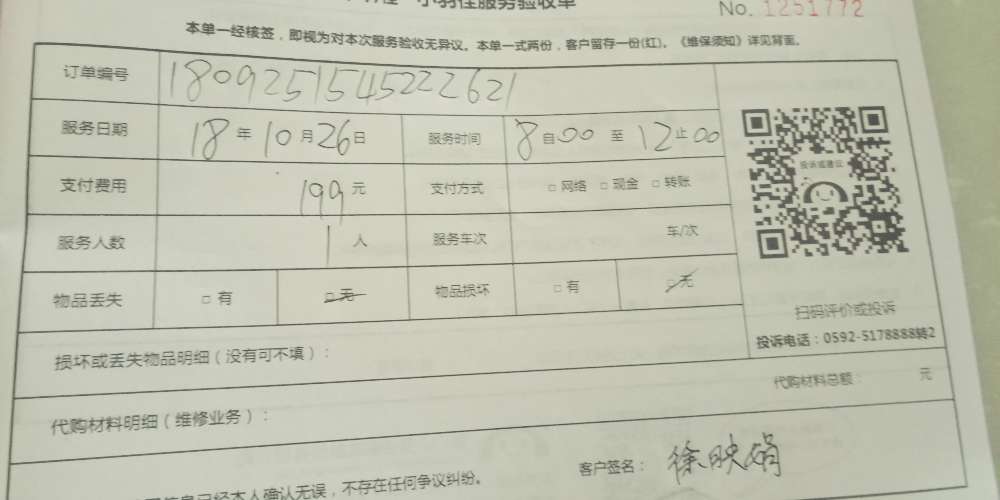 小羽佳服务验收单
No. 1251772
本单一经核签，即视为对本次服务验收无异议。本单一式两份，客户留存一份(红)。《维保须知》详见背面。
订单编号 1809251545222621
服务日期 18年10月26日 服务时间 8自00至12止00
投诉或建议
支付费用 199元 支付方式 □网络 □现金 □转账
服务人数 1人 服务车次 车/次
物品丢失 □有 □无 物品损坏 □有 □无
扫码评价或投诉
投诉电话：0592-5178888转2
损坏或丢失物品明细（没有可不填）：
代购材料总额： 元
代购材料明细（维修业务）：
客户签名： 徐映娟
已经本人确认无误，不存在任何争议纠纷。